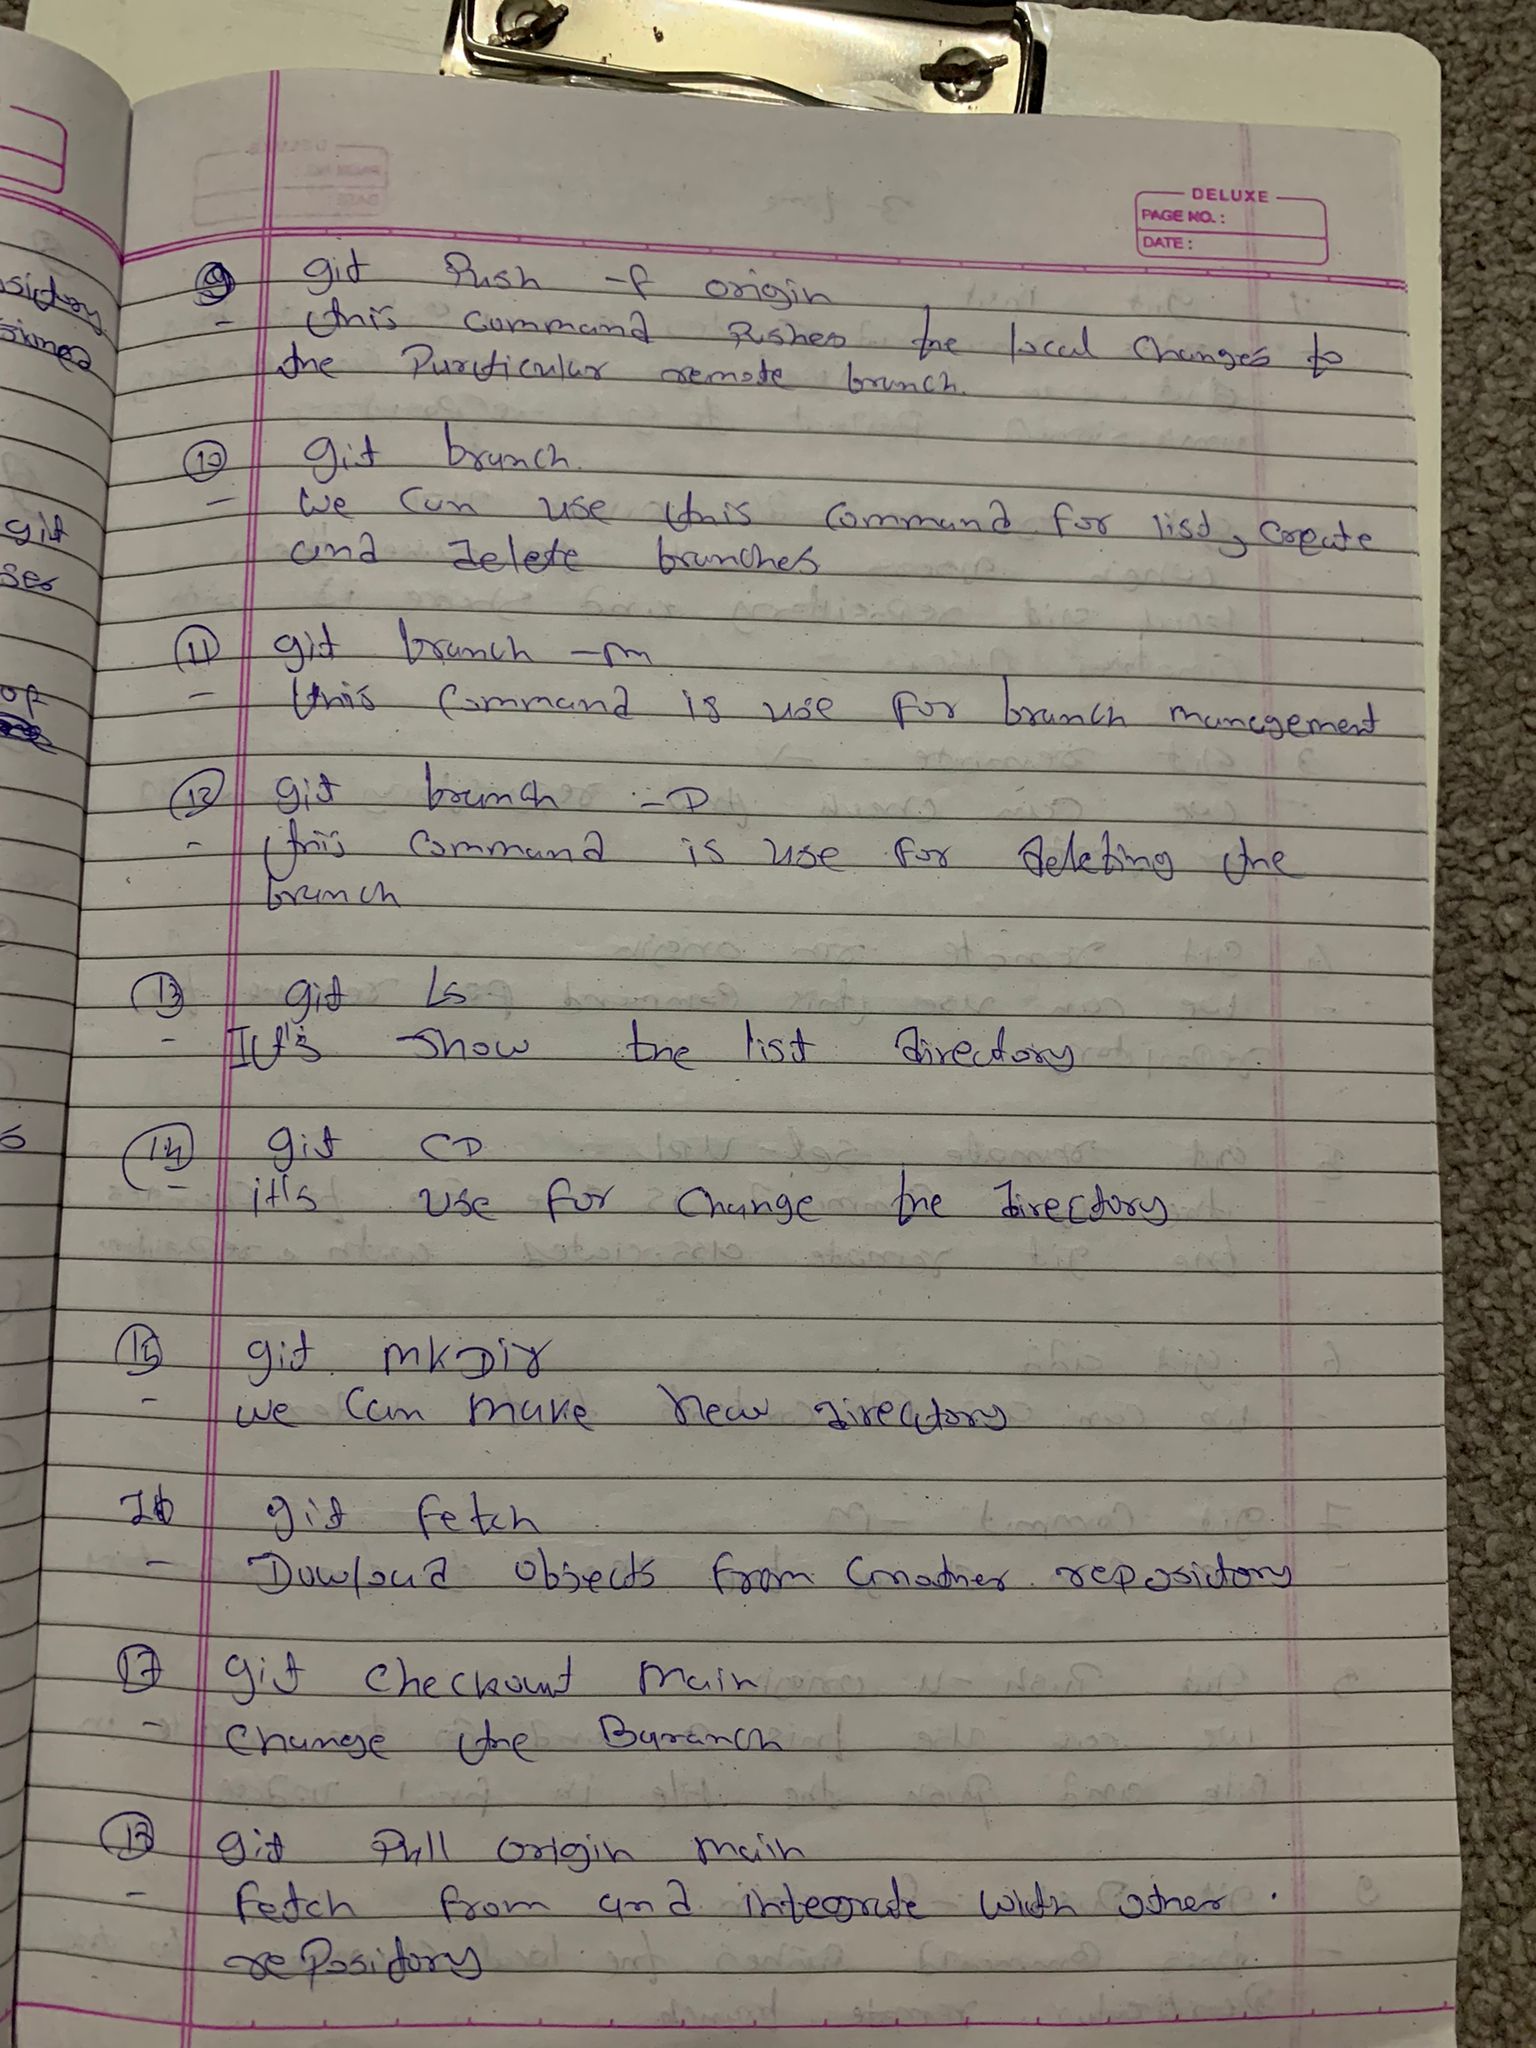 DELUXE
PAGE NO.:
DATE:
9 git Push -f origin
- this command Pushes the local changes to
the Purticular remote brunch.
10 git brunch.
- we cun use this command for list, create
and delete brunches
11 git brunch -m
- this command is use for brunch munegement
12 git brunch -D
- this command is use for deleting the
brunch
13 git Ls
- It's show the list directory
14 git CD
- it's use for chunge the directory
15 git mkDir
- we can make new directory
16 git fetch
- Dowload objects from another repository
17 git checkout main
- chunge the Buranch
18 git Pull origin main
- fetch from and integrate with other
rePository
sitory
git
ses
of